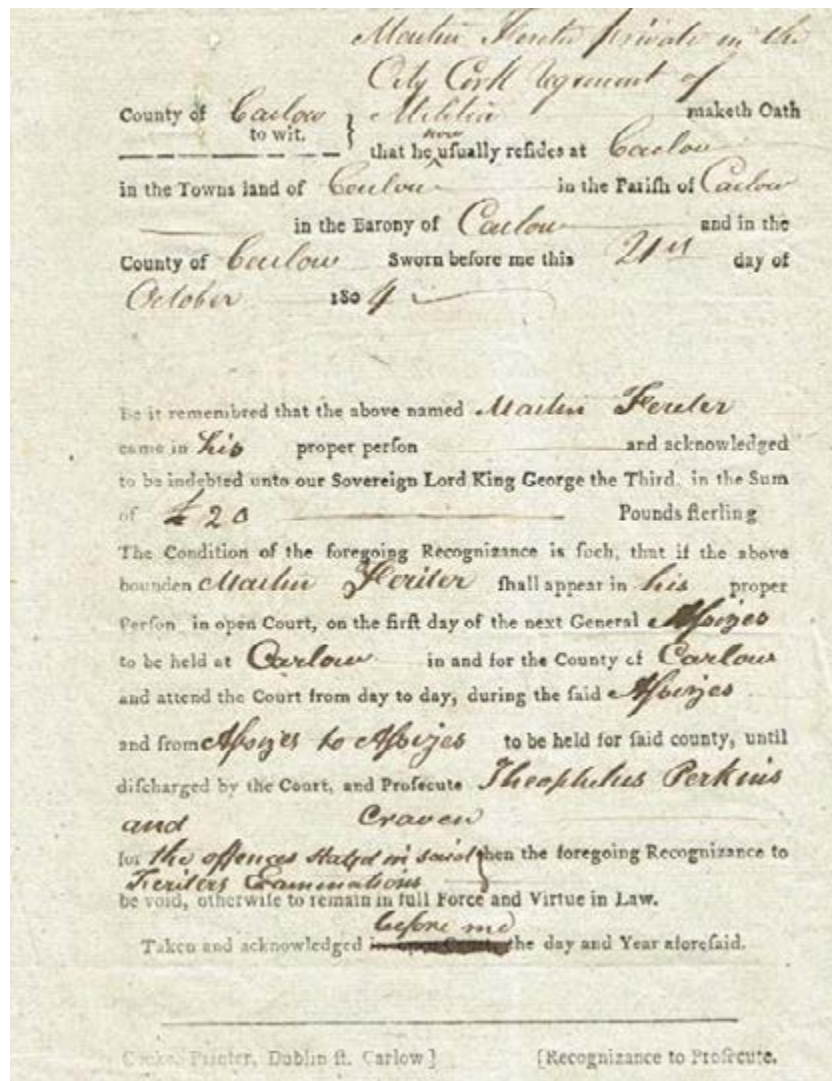 Martin Feriter private in the
City Cork Regiment of
County of Carlow } Militia maketh Oath
to wit. now
that he usually resides at Carlow
in the Towns land of Carlow in the Parish of Carlow
in the Barony of Carlow and in the
County of Carlow Sworn before me this 21st day of
October 1804
Be it remembred that the above named Martin Feriter
came in his proper person and acknowledged
to be indebted unto our Sovereign Lord King George the Third, in the Sum
of £20 Pounds sterling
The Condition of the foregoing Recognizance is such, that if the above
bounden Martin Feriter shall appear in his proper
Person in open Court, on the first day of the next General Assizes
to be held at Carlow in and for the County of Carlow
and attend the Court from day to day, during the said Assizes
and from Assizes to Assizes to be held for said county, until
discharged by the Court, and Prosecute Theophilus Perkins
and Craven
for the offences stated in said } then the foregoing Recognizance to
Feriters Examinations
be void, otherwise to remain in full Force and Virtue in Law.
before me
Taken and acknowledged in open Court, the day and Year aforesaid.
Cooke, Printer, Dublin st. Carlow] [Recognizance to Prosecute.